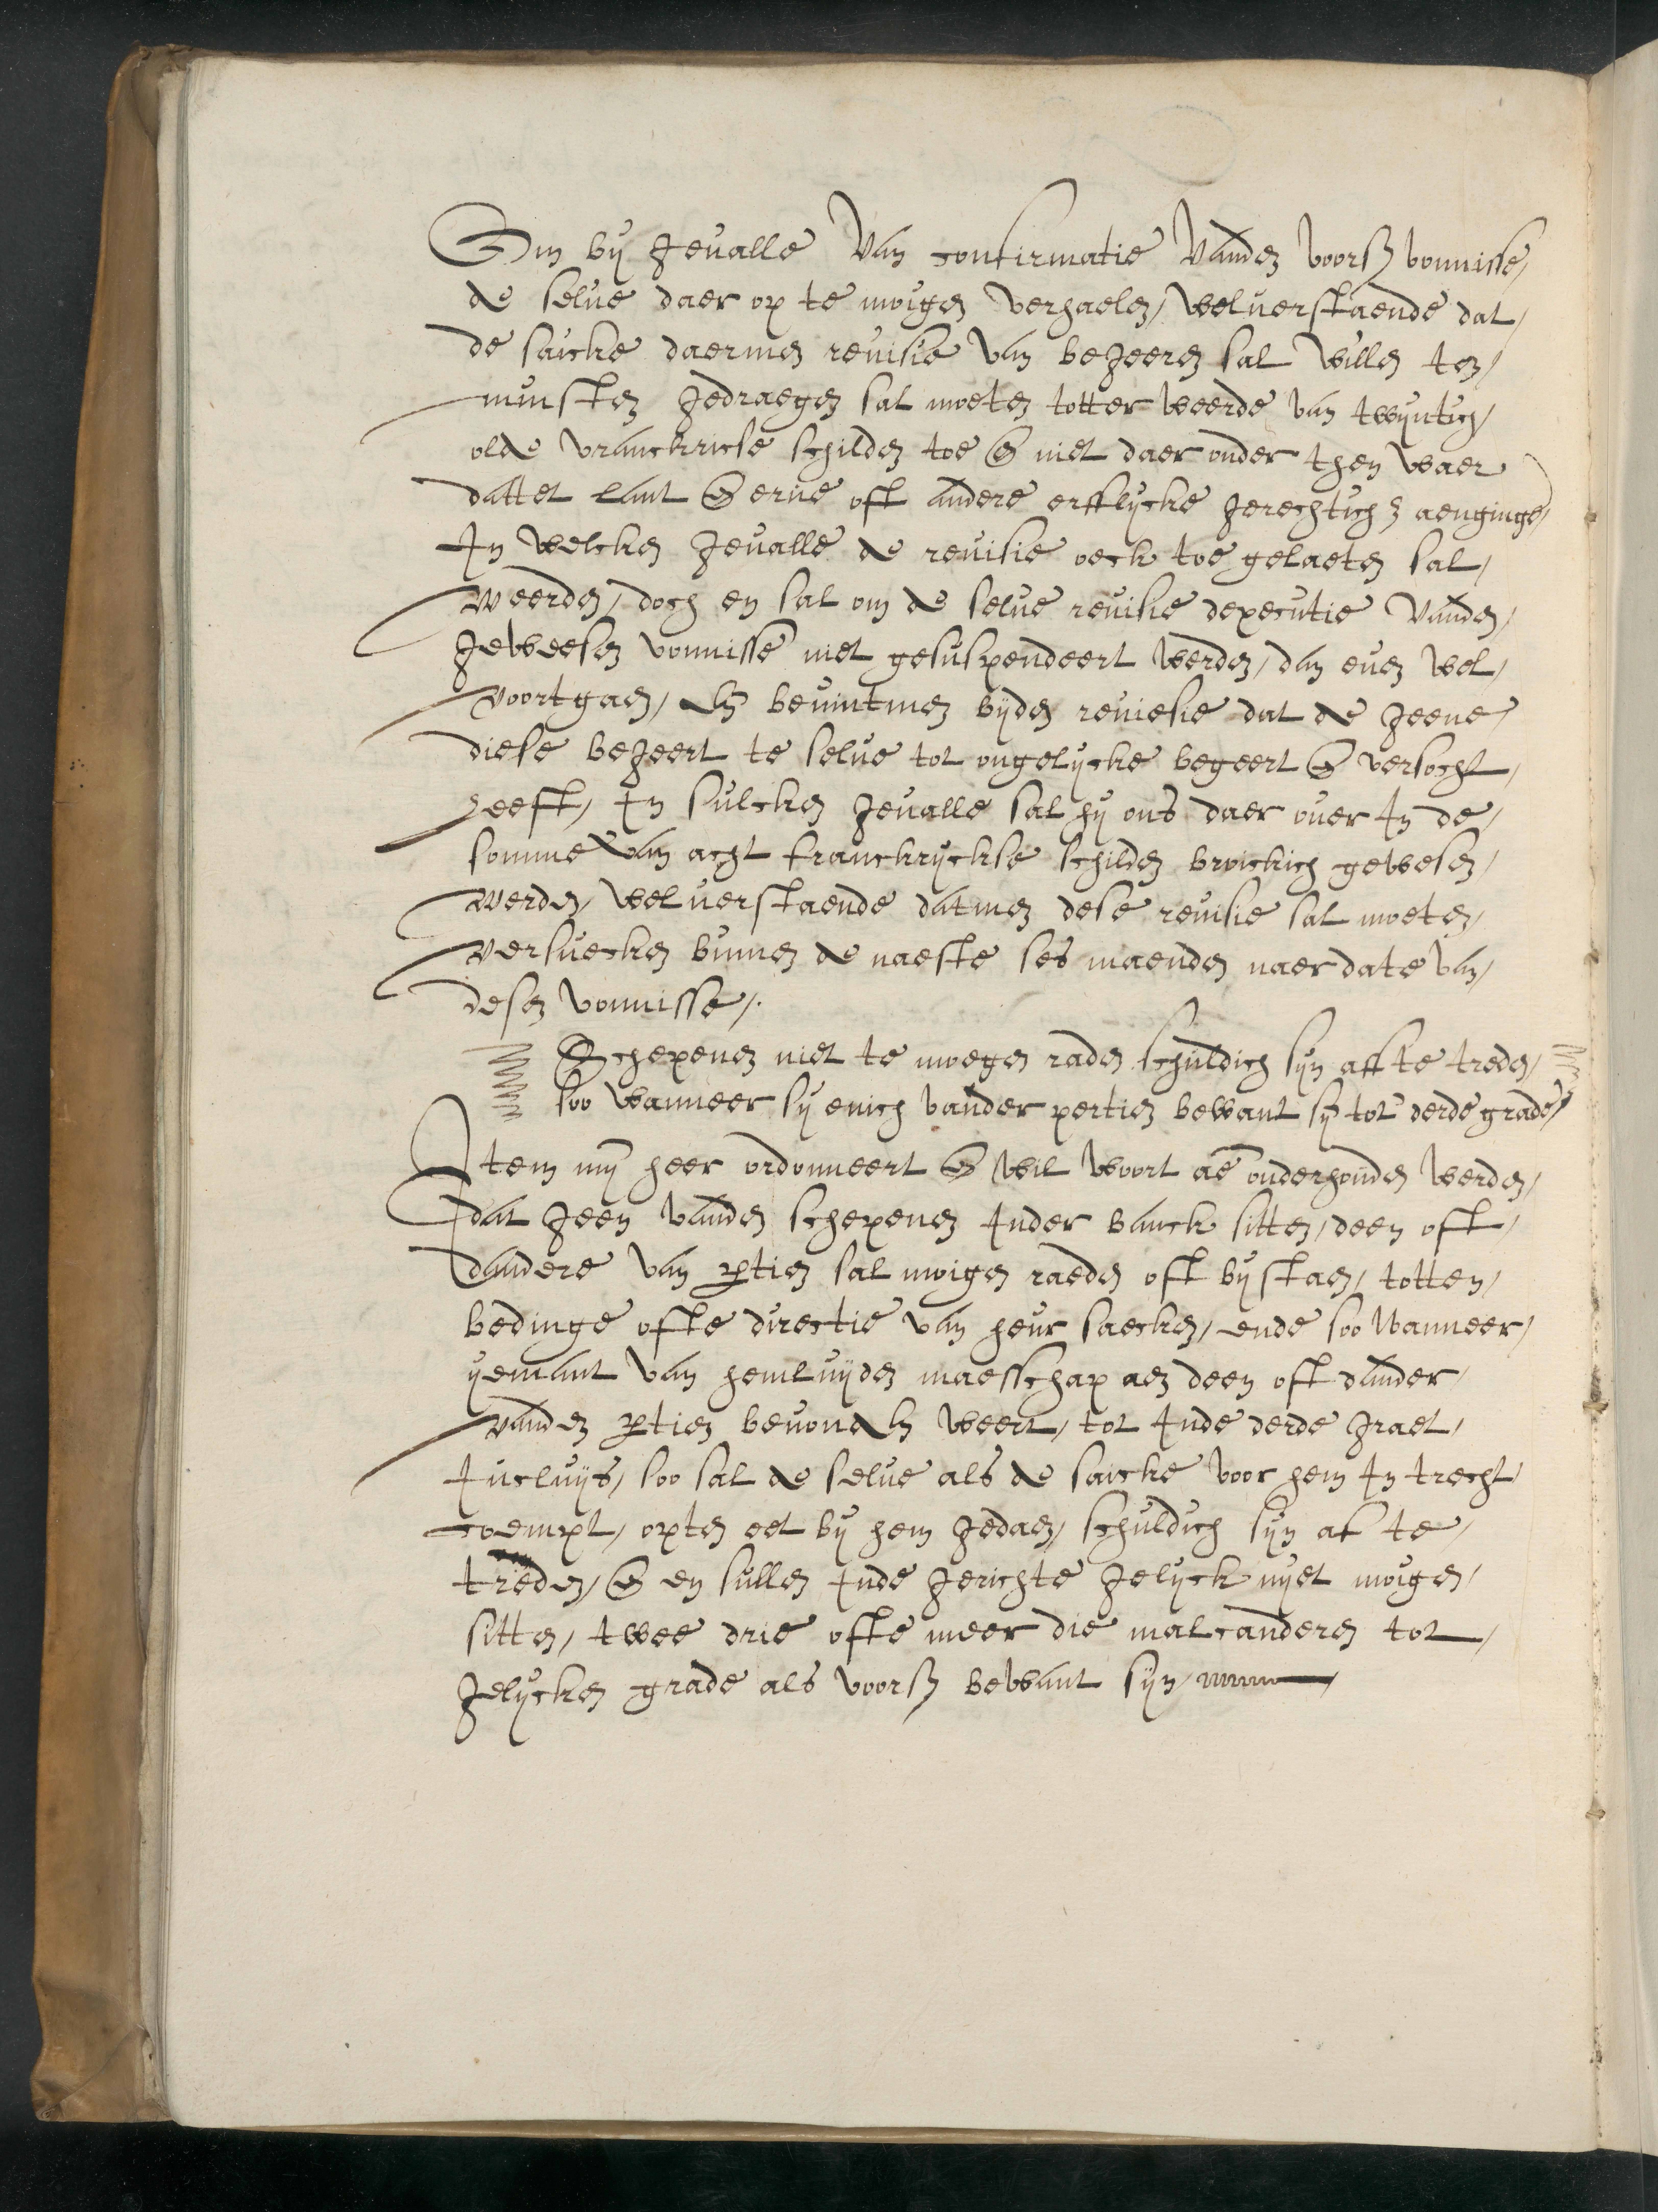 Om bij gevalle van confirmatie vanden voorß vonnisse,
de selue daer op te moigen verhaelen, welverstaende dat,
de saicke daermen reuisie van begeeren sal willen ten,
minsten gedraegen sal moeten totter weerde van twijntich,
olde vranckricse schilden toe en niet daer onder then waer
dattet lant en erue oft andere erfflijcke gerechtich aenginge,
In welcken geualle de reuisie oeck toe gelaeten sal,
weerden, doch en sal om de selue reuisie dexecutie vanden,
geweesen vonnisse niet gesuspendeert werden, dan euen wel,
voortgaen, ende bevintmen bijden reuiesie dat de geene,
diese begeert te selue tot ongelijcke begeert en versocht,
heeft, In sulcken geualle sal hij ons daer ouer In de,
somme van acht franckrijckse schilden broickich gewesen,
werden, welverstaende datmen dese reuisie sal moeten,
versuecken binnen de naeste ses maenden naer date van,
desen vonnisse,.
Schepenen niet te moegen raden schuldich sijn aff te treden,
soo wanneer sij enich vander pertien bewant sy tot derde grade,
Item mijn heer ordonneert en wil voort aen onderhouden werden,
dat geen vanden schepenen Inder banck sitten, deen oft,
dandere van ptien sal moigen raeden oft bijstaen, totten,
bedinge ofte directie van heur saecken, ende soo wanneer,
ijemant van hemluijden maesschap aen deen oft dander,
vanden ptien bevonden weert, tot Inde derde graet,
Incluijs, soo sal de selue als de saicke voor hem In trecht
coempt, opten eet bij hem gedaen, schuldich sijn af te,
treden, en en sullen Inde gerichte gelijck nijet moigen,
sitten, twee drie ofte meer die malcanderen tot,
gelijcken grade als voorß bewant sijn,